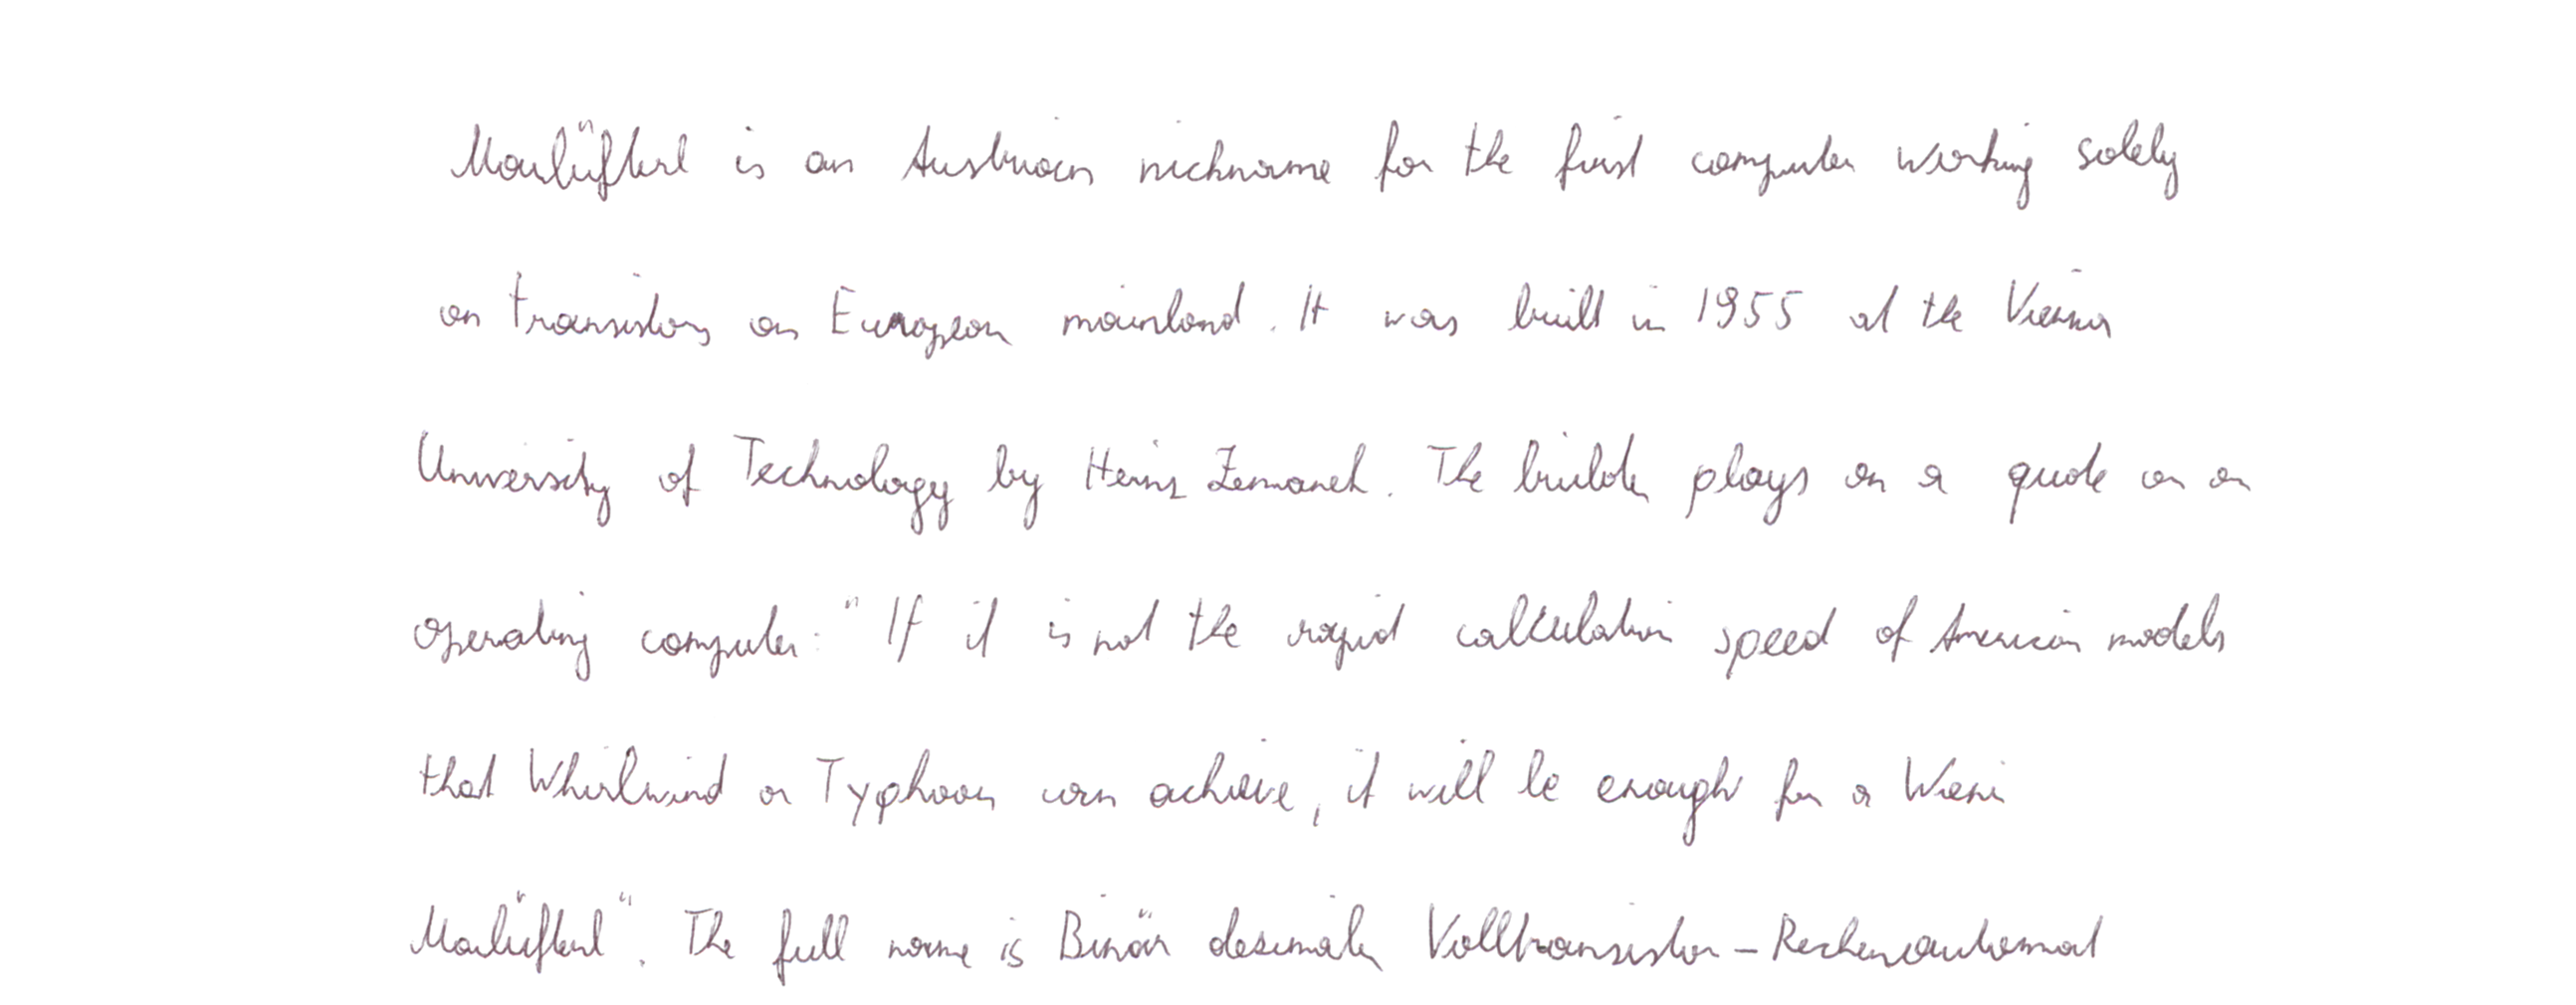 Mailüfterl is an Austrian nickname for the first computer working solely
on transistors on European mainland. It was built in 1955 at the Vienna
University of Technology by Heinz Zemanek. The builder plays on a quote on an
operating computer: "If it is not the rapid calculation speed of American models
that Whirlwind or Typhoon can achieve, it will be enough for a Wiener
Mailüfterl". The full name is Binär dezimaler Volltransistor-Rechenautomat